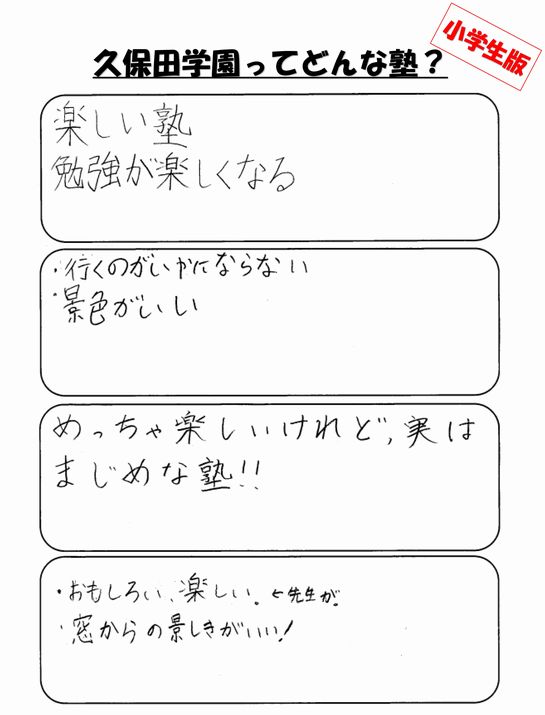 小学生版
久保田学園ってどんな塾？
楽しい塾
勉強が楽しくなる
・行くのがいやにならない
・景色がいい
めっちゃ楽しいけれど、実は
まじめな塾!!
・おもしろい、楽しい。←先生が。
・窓からの景しきがいい!